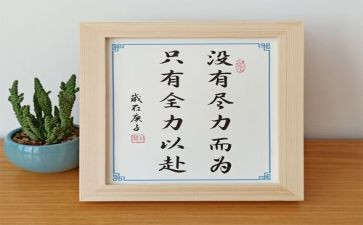 没有尽力而为
只有全力以赴
岁在庚子